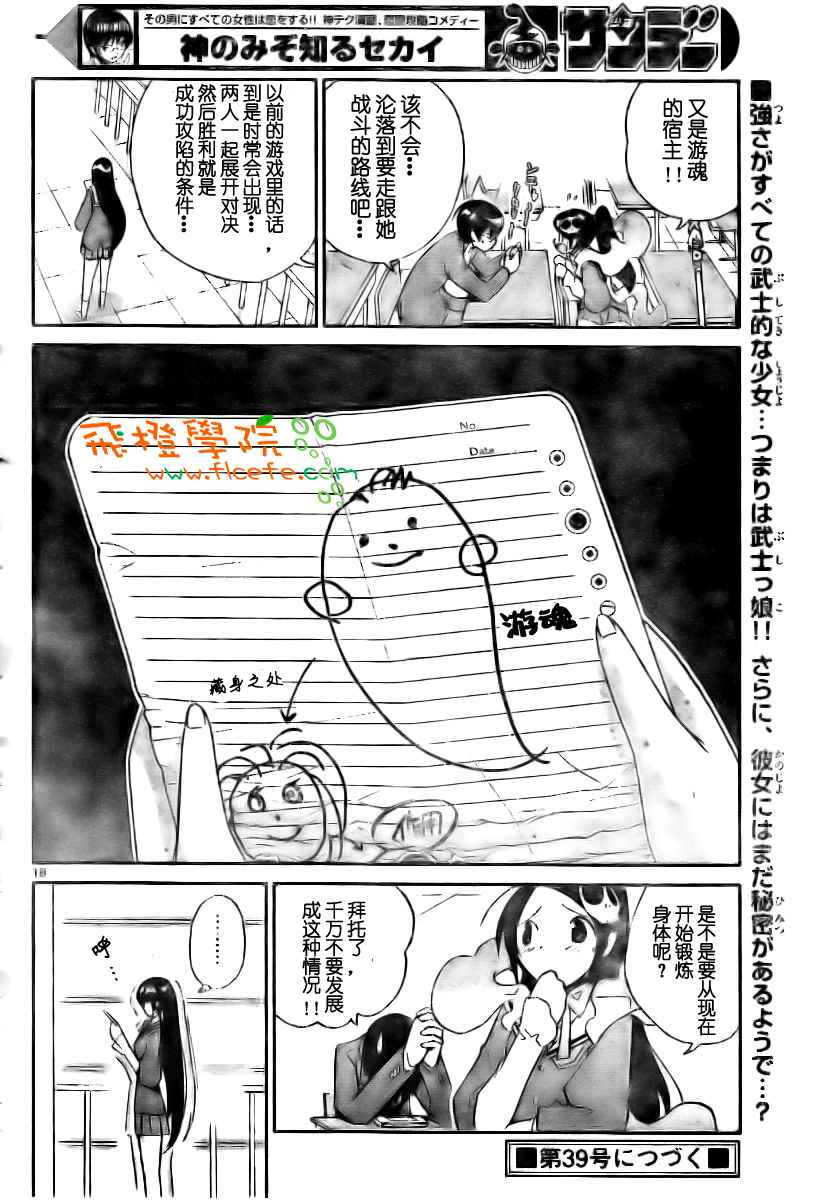 その男にすべての女性は恋をする!! 神テク満載、恋愛攻略コメディー
神のみぞ知るセカイ
サンデー
■強さがすべての武士的な少女…つまりは武士っ娘!! さらに、彼女にはまだ秘密があるようで…?
又是游魂
的宿主!!
该不会…
沦落到要走跟她
战斗的路线吧…
以前的游戏里的话,
到是时常会出现…
两人一起展开对决
然后胜利就是
成功攻陷的条件…
飛橙學院
www.flcefe.com
No.
Date
游魂
藏身之处
作用
18
是不是要从现在
开始锻炼
身体呢?
拜托了,
千万不要发展
成这种情况!!
………
呼…
■第39号につづく■